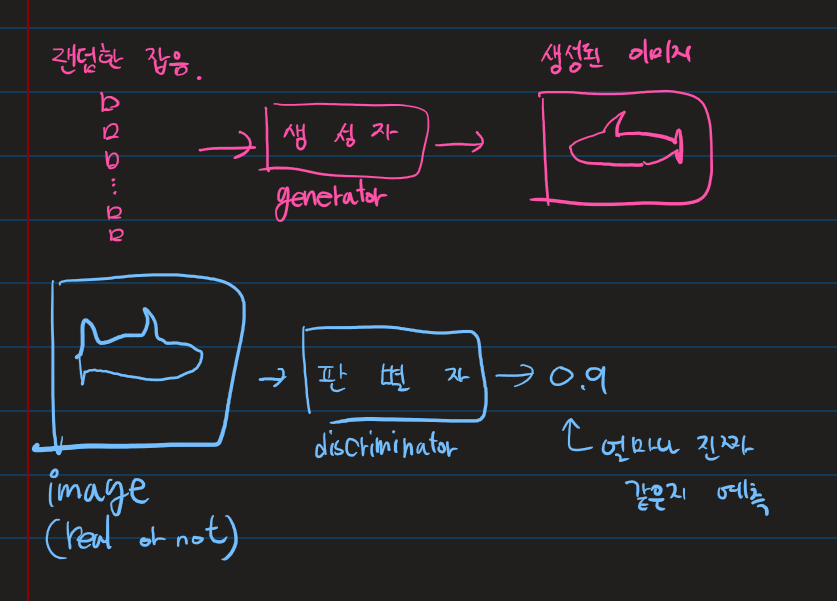 랜덤한 잡음.
생성자
generator
생성된 이미지
판별자
discriminator
0.9
얼마나 진짜
같은지 예측
image
(real or not)